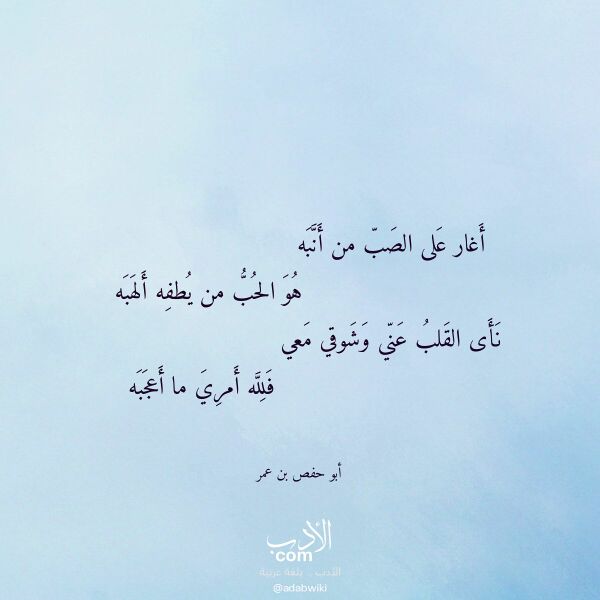 أَغار عَلى الصَبّ من أَنَّبَه
هُوَ الحُبُّ من يُطفِه أَلهَبَه
نَأَى القَلبُ عَنّي وَشَوقي مَعي
فَلِلَّه أَمرِيَ ما أَعجَبَه
أبو حفص بن عمر
الأدب
com
الأدب .. بلغة عربية
@adabwiki